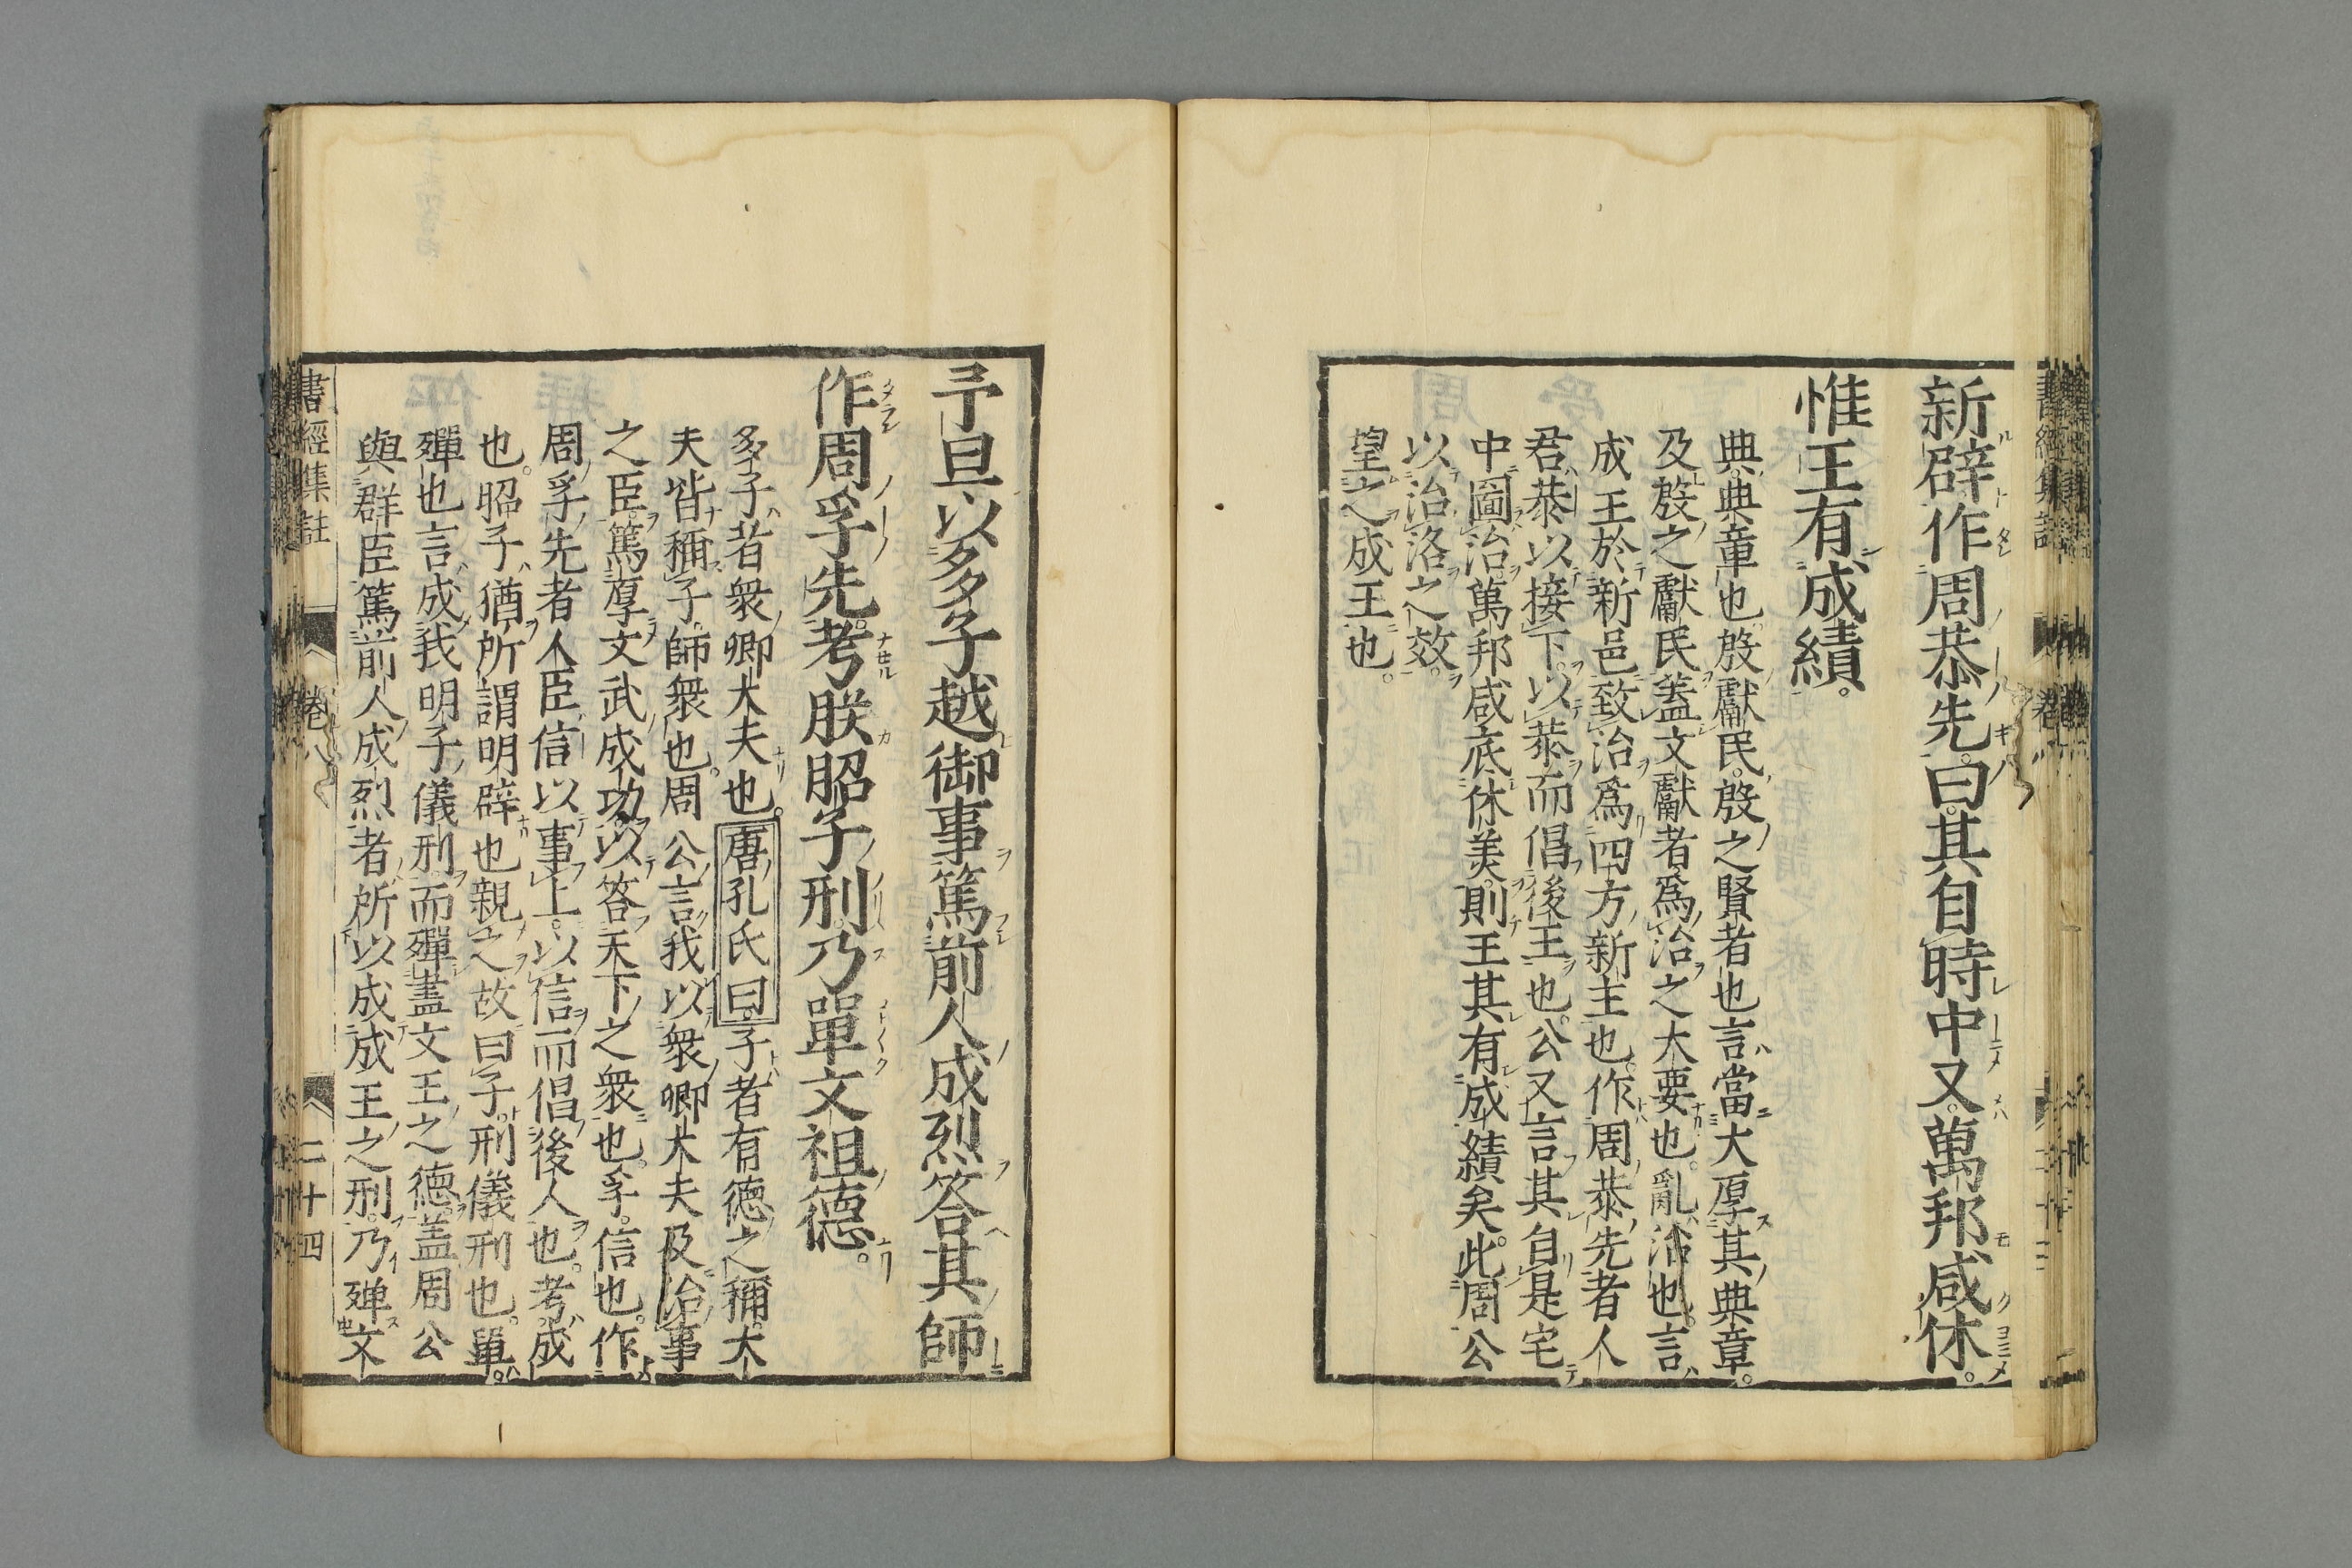 新辟作周恭先。曰。其自時中乂。萬邦咸休。
惟王有成績。
典。典章也。殷獻民。殷之賢者也。言當大厚其典章。
及殷之獻民。蓋文獻者。爲治之大要也。亂。治也。言
成王於新邑致治。爲四方新主也。作周恭先者。人
君恭以接下。以恭而倡後王也。公又言其自是宅
中圖治。萬邦咸底休美。則王其有成績矣。此周公
以治洛之效。
望之成王也。
予旦以多子越御事篤前人成烈答其師
作周孚先。考朕昭子刑乃單文祖德。
多子者衆卿大夫也。唐孔氏曰子者有德之稱。大
夫皆稱子。師衆也。周公言我以衆卿大夫及治事
之臣。篤厚文武成功。以答天下之衆也。孚。信也。作
周孚先者。人臣信以事上。以信而倡後人也。考。成
也。昭子。猶所謂明辟也。親之故曰子。刑儀刑也。單。
殫也。言成我明子儀刑。而殫盡文王之德。蓋周公
與群臣篤前人成烈者。所以成成王之刑。乃殫文
書經集註 卷八 二十四